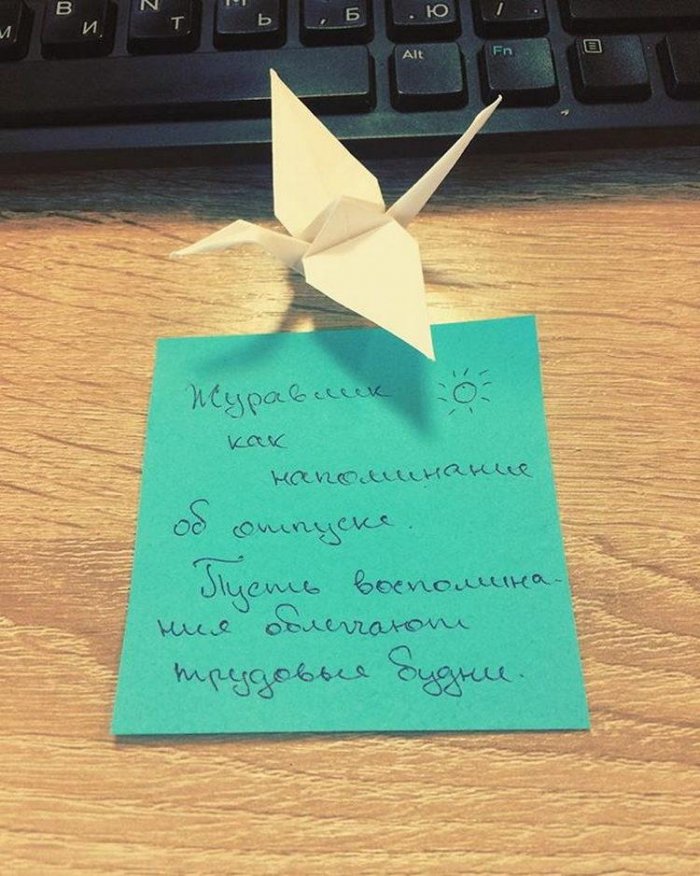 И
В И
N Т
М Ь
, Б
. Ю
/ .
Alt
Fn
Журавлик
как
напоминание
об отпуске.
Пусть воспомина-
ния облегчают
трудовые будни.